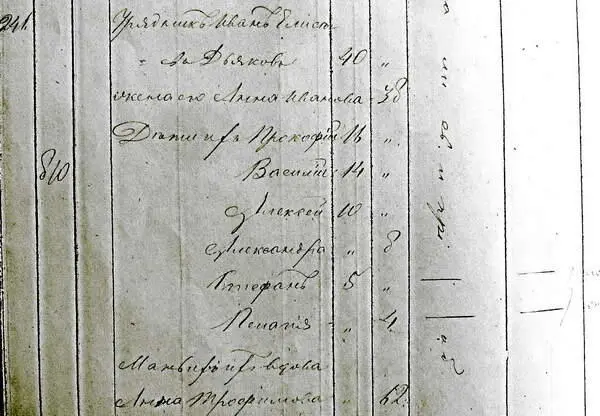 241. Урядникъ Иванъ Елисѣ
евъ Дьяковъ 40 „
жена его Анна Иванова - 38
Дѣти ихъ Прокофій 16 „
Василій 14 „
610
Алексѣй 10 „
Александра „ 8
Стефанъ 5 „
Пелагія „ 4.
Мать ихъ вдова
Анна Трофимова „ 62.